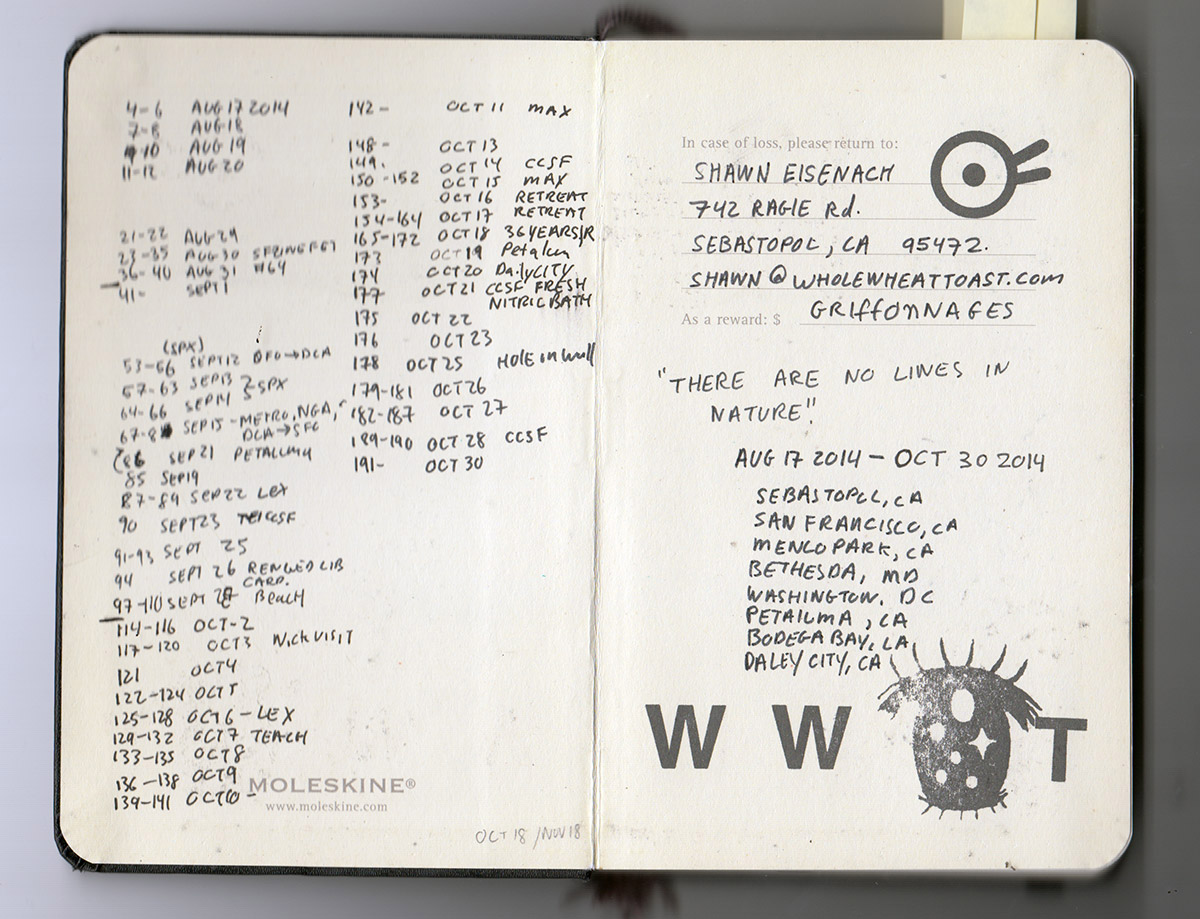 4-6 AUG 17 2014
7-8 AUG 18
10 AUG 19
11-12 AUG 20
21-22 AUG 29
23-35 AUG 30
36-40 AUG 31 #64
41- SEPT 1
(SPX)
53-56 SEPT12 →DCA
57-63 SEP13
64-66 SEP14 } SPX
67-8 SEP15 - METRO, NGA,
DCA→SFO
86 SEP 21 PETALUMA
85 SEP19
87-89 SEP22 LEX
90 SEPT23 CCSF
91-93 SEPT 25
94 SEPT 26 LIB
CARD.
97-110 SEPT BEACH
114-116 OCT-2
117-120 OCT3 NICK VISIT
121 OCT4
122-124 OCT5
125-128 OCT6 - LEX
129-132 OCT7 TEACH
133-135 OCT8
136-138 OCT9
139-141 OCT10 -
142- OCT 11 MAX
148- OCT 13
149. OCT 14 CCSF
150-152 OCT 15 MAX
153- OCT 16 RETREAT
154-164 OCT 17 RETREAT
165-172 OCT 18 36 YEARS/R
173 OCT 19 Petalum
174 OCT 20 DailyCITY
177 OCT 21 CCSF FRESH
NITRIC BATH
175 OCT 22
176 OCT 23
178 OCT 25 HOLE in wall
179-181 OCT 26
182-187 OCT 27
189-190 OCT 28 CCSF
191- OCT 30
MOLESKINE®
www.moleskine.com
OCT 18 /NOV 18
In case of loss, please return to:
SHAWN EISENACH
742 RAGLE Rd.
SEBASTOPOL, CA 95472.
SHAWN@WHOLEWHEATTOAST.COM
GRIFFONNAGES
As a reward: $
"THERE ARE NO LINES IN
NATURE"
AUG 17 2014 - OCT 30 2014
SEBASTOPOL, CA
SAN FRANCISCO, CA
MENLO PARK, CA
BETHESDA, MD
WASHINGTON. DC
PETALUMA, CA
BODEGA BAY, CA
DALEY CITY, CA
W W T